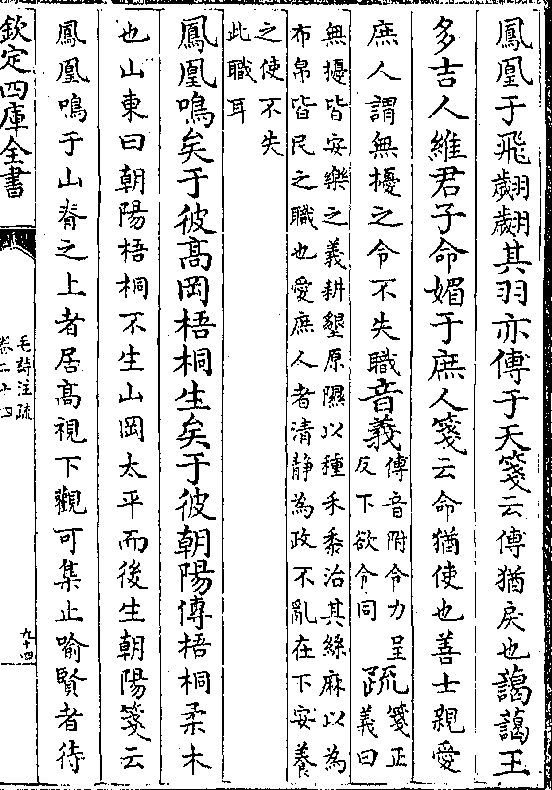 鳳凰于飛翽翽其羽亦傅于天箋云傅猶戾也藹藹王
多吉人維君子命媚于庶人箋云命猶使也善士親愛
庶人謂無擾之令不失職音義傅音附令力呈
反下欲令同疏箋正
義曰
無擾皆安樂之義耕墾原隰以種禾黍治其絲麻以為
布帛皆民之職也愛庶人者清靜為政不亂在下安養
之使不失
此職耳
鳳凰鳴矣于彼髙岡梧桐生矣于彼朝陽傳梧桐柔木
也山東曰朝陽梧桐不生山岡太平而後生朝陽箋云
鳳凰鳴于山脊之上者居髙視下觀可集止喻賢者待
欽定四庫全書
毛詩注疏
卷二十四
九十四